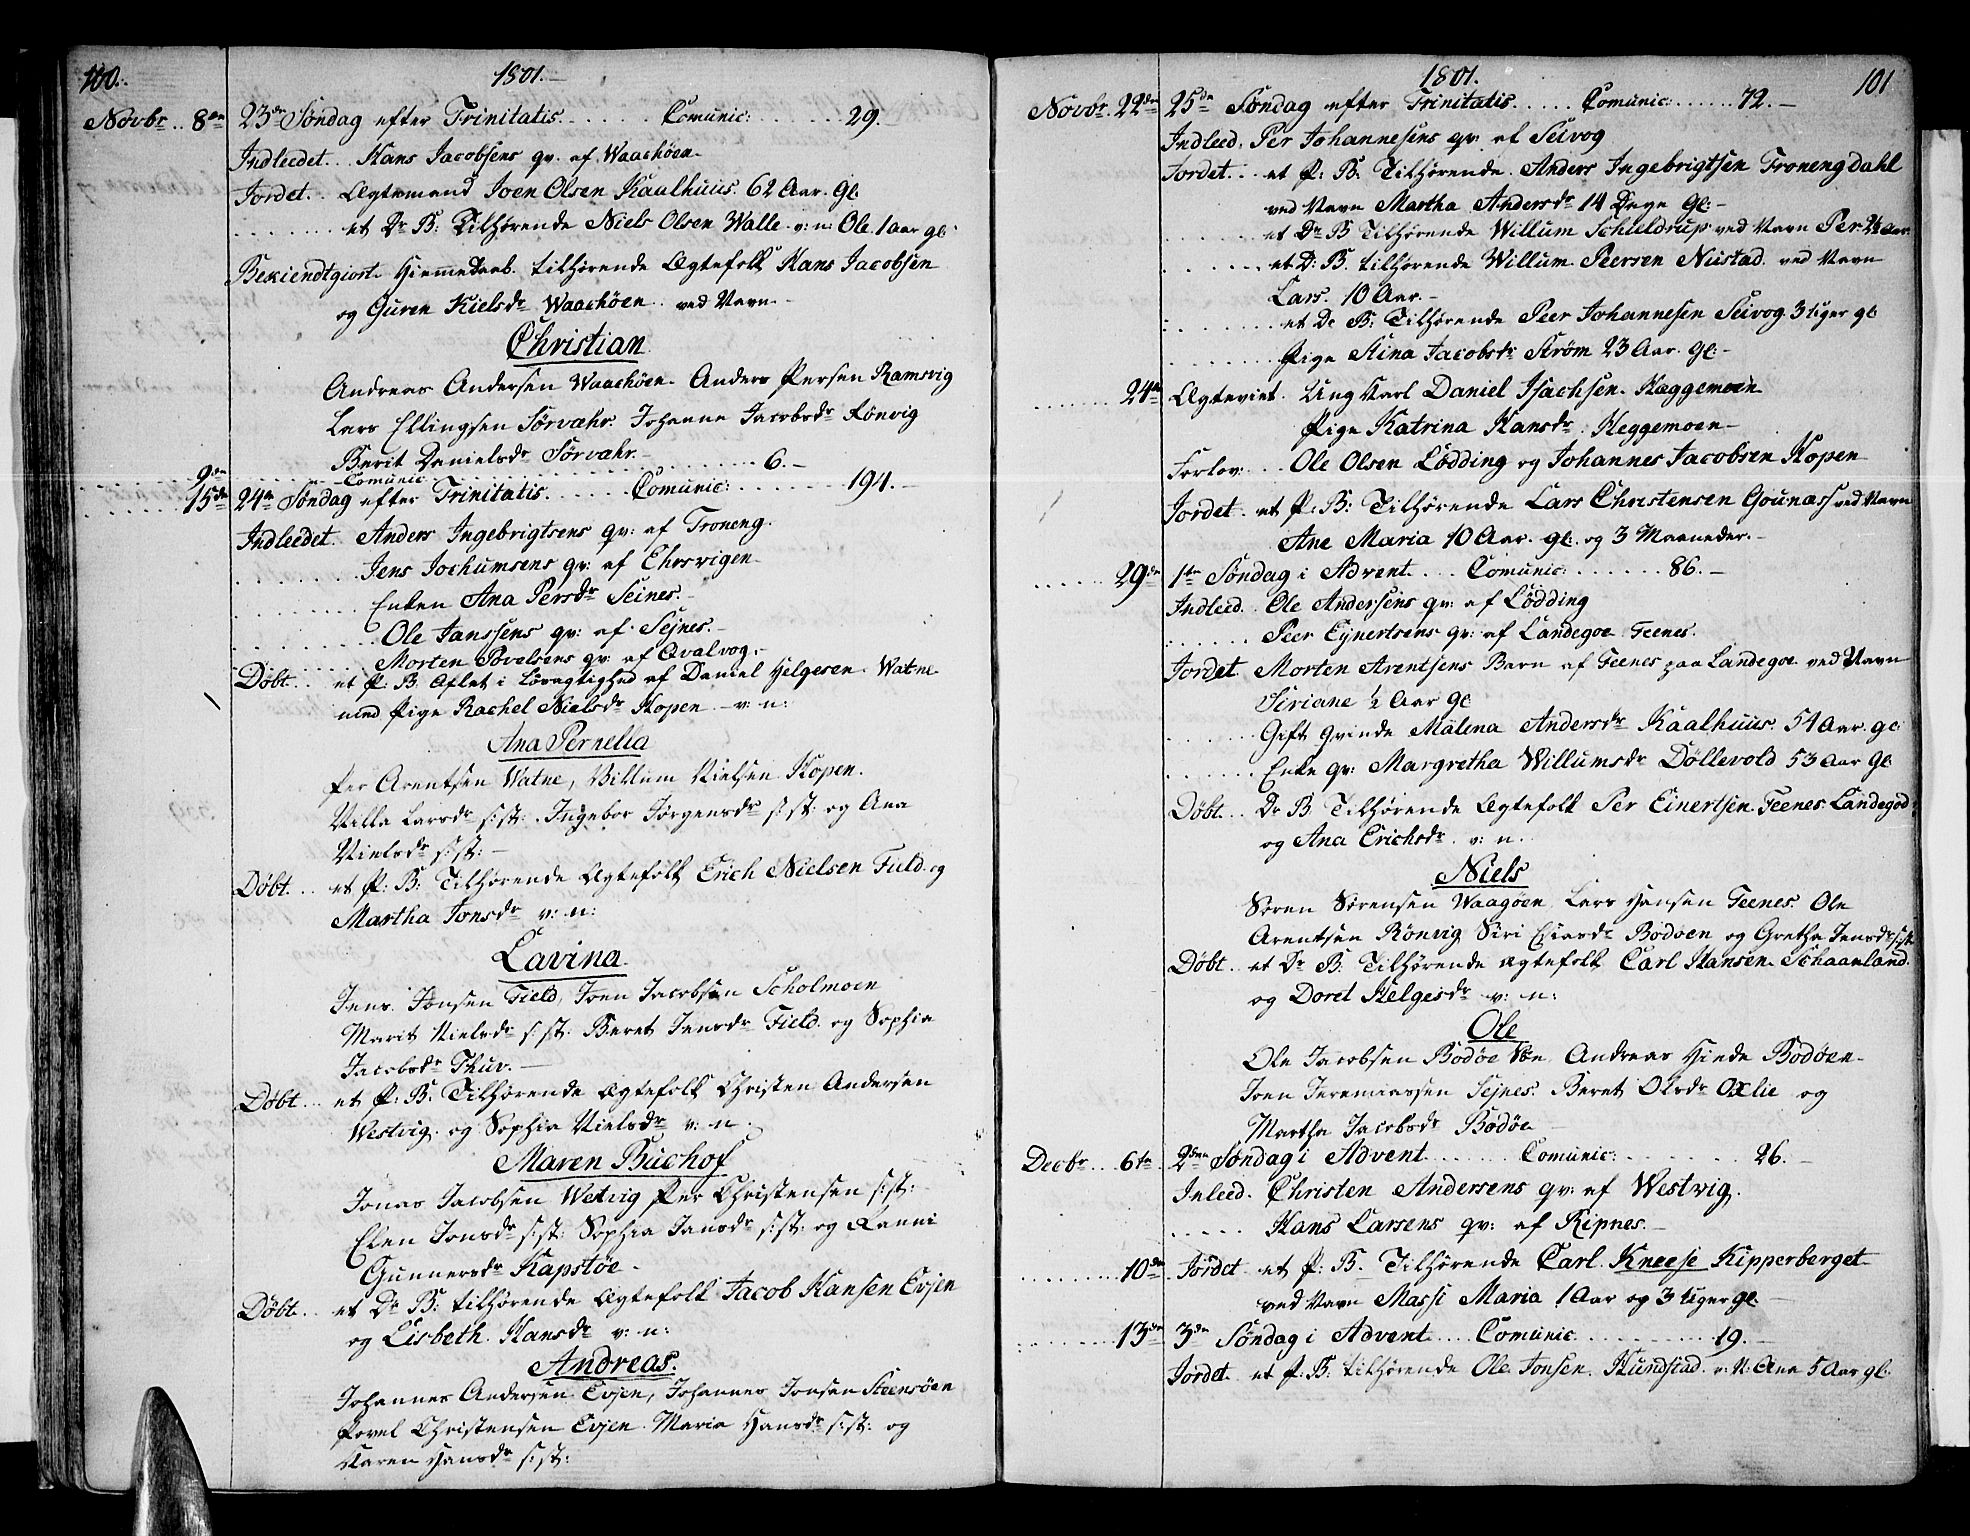 100.
1801.
Novbr .. 8de 23de Søndag efter Trinitatis ...... Comunic: ...... 29.
Indleedet .. Hans Jacobsens qv: af Waachøen.
Jordet. Ægtemand Joen Olsen Kaalhuus. 62 Aar. Gl.
et Dr. B: Tilhørende Niels Olsen Walle v: n: Ole. 1 aar gl:
Bekiendtgiort. Hiemmedaab. tilhørende Ægtefolk Hans Jacobsen
og Guren Kielsdr Waachöen .. ved Navn.
Christian.
Andreas Andersen Waachöen. Anders Persen Ramsvig
Lars Ellingsen Sörvæhr. Johanne Jacobsdr Rönvig
Berit Danielsdr Sörvæhr.
9de Comunic ...... 6.
15de 24de Søndag efter Trinitatis ...... Comunic: ...... 194.
Indleedet. Anders Ingebrigtsens qv: af Troneng.
Jens Jochumsens qv: af Ehrsvigen.
Enken Ana Persdr Seines.
Ole Janssens qv: af Sejnes.
Morten Povelsens qv: af Qvalvog.
Døbt .. et P. B. Aflet i Løsagtighed af Daniel Helgesen Watne
med Pige Rachel Nielsdr Hopen v: n:
Ana Pernelia
Per Arentsen Watne, Villum Nielsen Hopen.
Villa Larsdr s: st: Ingebor Jørgensdr s: st: og Ana
Nielsdr s: st:
Døbt. .. et P: B: Tilhørende Ægtefolk Erich Nielsen Field og
Martha Jonsdr v: n:
Lavina.
Jens Jonsen Field, Joen Jacobsen Scholmoen
Marit Nielsdr s: st: Beret Jensdr Field og Sophia
Jacobsdr Thuv.
Døbt .. et P. B. Tilhørende Ægtefolk Christen Andersen
Westvig. og Sophia Nielsdr v: n.
Maren Buchof
Jonas Jacobsen Wetvig Per Christensen s: st:
Elen Jonsdr s: st: Sophia Jansdr s: st: og Ranni
Gunnersdr Kapstøe.
Døbt .. et Dr B: tilhørende Ægtefolk Jacob Hansen Evjen
og Lisbeth Hansdr v: n:
Andreas.
Johannes Andersen Evjen, Johannes Jonsen Steensöen
Povel Christensen Evjen. Maria Hansdr s: st: og
Karen Hansdr s: st:
1801.
101
Novbr. 22de 25de Søndag efter Trinitatis ..... Comunic: ...... 72.
Indleed. Per Johannesens qv: af Seivog
Jordet .. et P: B. Tilhørende Anders Ingebrigtsen Tronengdahl
ved Navn Martha Andersdr 14 Dage Gl.
et Dr B Tilhørende Willum Schieldrup ved Navn Per 2½ Aar.
et D: B. tilhørende Willum Peersen Nustad ved Navn
Lars. 10 Aar.
et Dr B: Tilhørende Peer Johannesen Seivog 3 Uger gl:
Pige Stina Jacobsdr Strøm 23 Aar. Gl.
24de Ægteviet. Ung Karl Daniel Isachsen. Hæggemoen
Pige Katrina Hansdr Heggemoen
Forlov: ... Ole Olsen Lödding og Johannes Jacobsen Hopen
Jordet .. et P: B: Tilhørende Lars Christensen Gounæss ved Navn
Ane Maria 10 Aar. gl: og 3 Maaneder.
29de 1te Søndag i Advent .... Comunic: ...... 86.
Indleed. Ole Andersens qv: af Lödding
Peer Eynertsens qv: af Landegoe Feenes.
Jordet Morten Arentsens Barn af Feenes paa Landegoe ved Navn
Siriane ½ Aar Gl.
Gift Qvinde Malena Andersdr Kaalhuus. 54 Aar. gl
Enke qv: Margretha Willumsdr Döllevold 53 Aar Gl.
Döbt .. Dr B Tilhørende Ægtefolk Per Einertsen. Feenes Landegod
og Ana Erichsdr v: n.
Niels
Søren Sørensen Waagöen. Lars Hansen Feenes. Ole
Arentsen Rönvig. Siri Esiasdr Bodöen og Gretha Jensdr s: st:
Döbt .. et Dr B: Tilhørende Ægtefolk Carl Hansen Schaanland.
og Doret Helgesdr v: n:
Ole
Ole Jacobsen Bodöe Andreas Hinde Bodöen
Joen Jeremiassen Sejnes. Beret Olsdr Oxlie og
Martha Jacobsdr Bodöe
Decbr .. 6te 2den Søndag i Advent ...... Comunic: ...... 26.
Inleed. Christen Andersens qv: af Westvig.
Hans Larsens qv: af Ripnes.
10de Jordet et P: B. Tilhørende Carl Kneese Kipperberget
ved Navn Massi Maria 1 Aar og 3 Uger gl.
13de 3de Søndag i Advent .... Comunic ...... 19.
Jordet .. et P: B: tilhørende Ole Jonsen. Hundstad v: N: Ana 5 Aar gl.